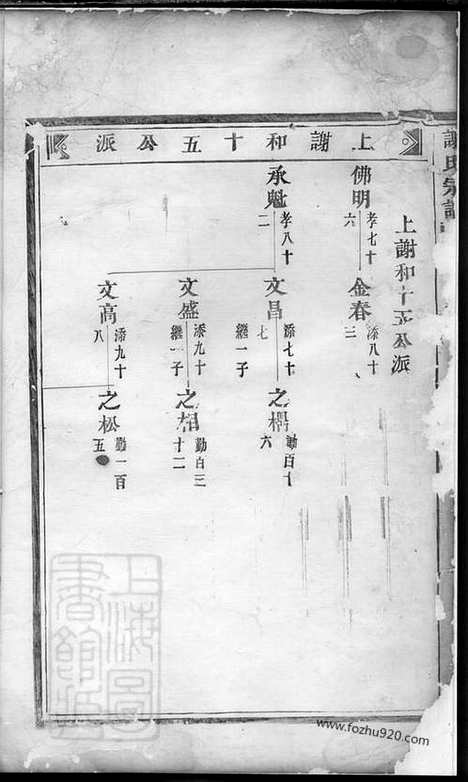 謝氏宗譜
上謝和十五公派
上謝和十五公派
佛明
孝七十六
金春
添八十三
承魁
孝八十二
文昌
添七十七
繼一子
之楫
勤百十六
文盛
添九十
繼一子
之相
勤百三十二
文高
添九十八
之松
勤一百五
上海圖書館藏
www.fozhu920.com